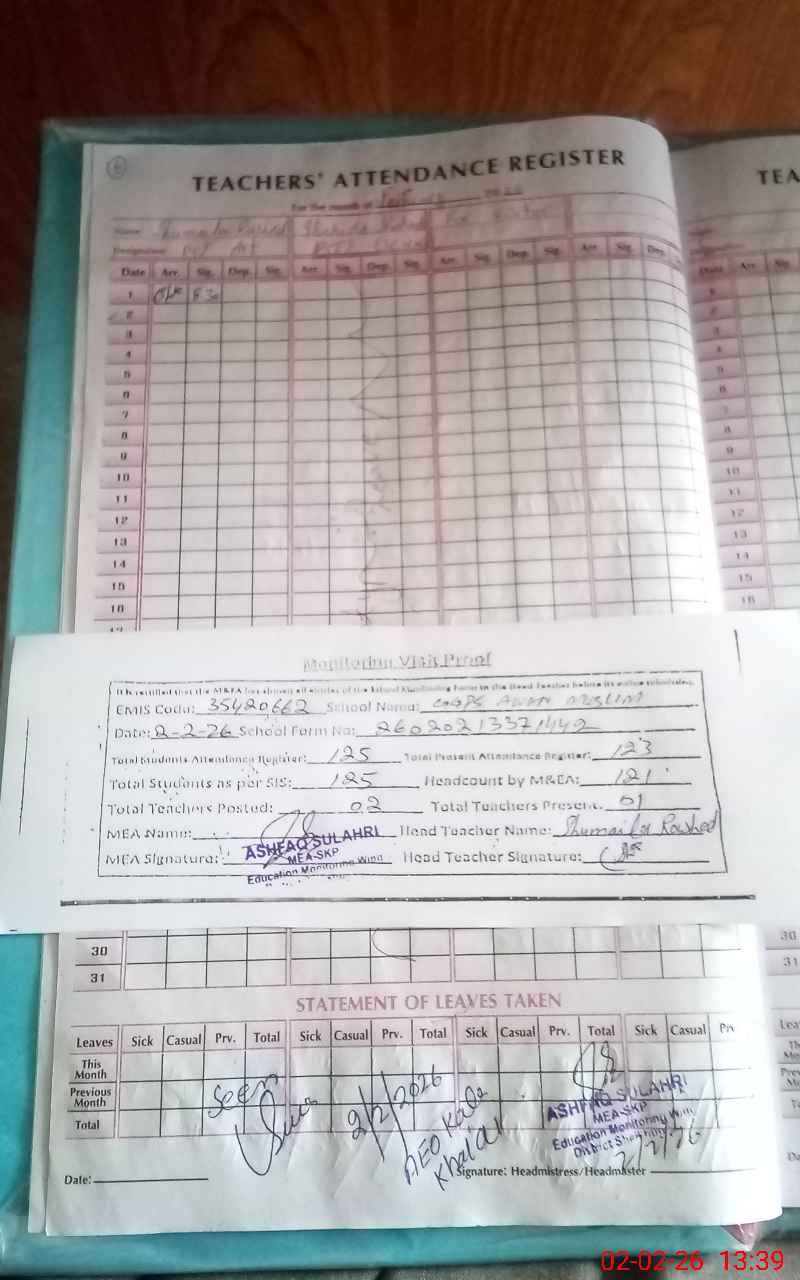 TEACHERS' ATTENDANCE REGISTER
TEA
For the month of
Name
Designation
Date Arr. Sig. Dep. Sig. Arr. Sig. Dep. Sig. Arr. Sig. Dep. Sig. Arr. Sig. Dep. Date Arr. Sig.
1 8 30
2
3
4
5
6
7
8
9
10
11
12
13
14
15
16
Monitoring Visit Proof
It is certified that the M&EA has shown all entries of the School Monitoring Form to the Head Teacher before its online submission.
EMIS Code: 35420662 School Name: GGPS AWAN MUSLIM
Date: 2-2-26 School Form No: 26020213371442
Total Students Attendance Register: 125 Total Present Attendance Register: 123
Total Students as per SIS: 125 Headcount by M&EA: 121
Total Teachers Posted: 02 Total Teachers Present. 01
MEA Name: Head Teacher Name: Shumaila Rashed
MEA Signature: Head Teacher Signature:
ASHFAQ SULAHRI
MEA-SKP
Education Monitoring Wing
30
31
STATEMENT OF LEAVES TAKEN
Leaves Sick Casual Prv. Total Sick Casual Prv. Total Sick Casual Prv. Total Sick Casual Prv
This Month
Previous Month
Total
Seen
2/2/2026
AEO Kala
Khatai
ASHFAQ SULAHRI
MEA-SKP
Education Monitoring Wing
District
2/2/26
Date: Signature: Headmistress/Headmaster
02-02-26 13:39